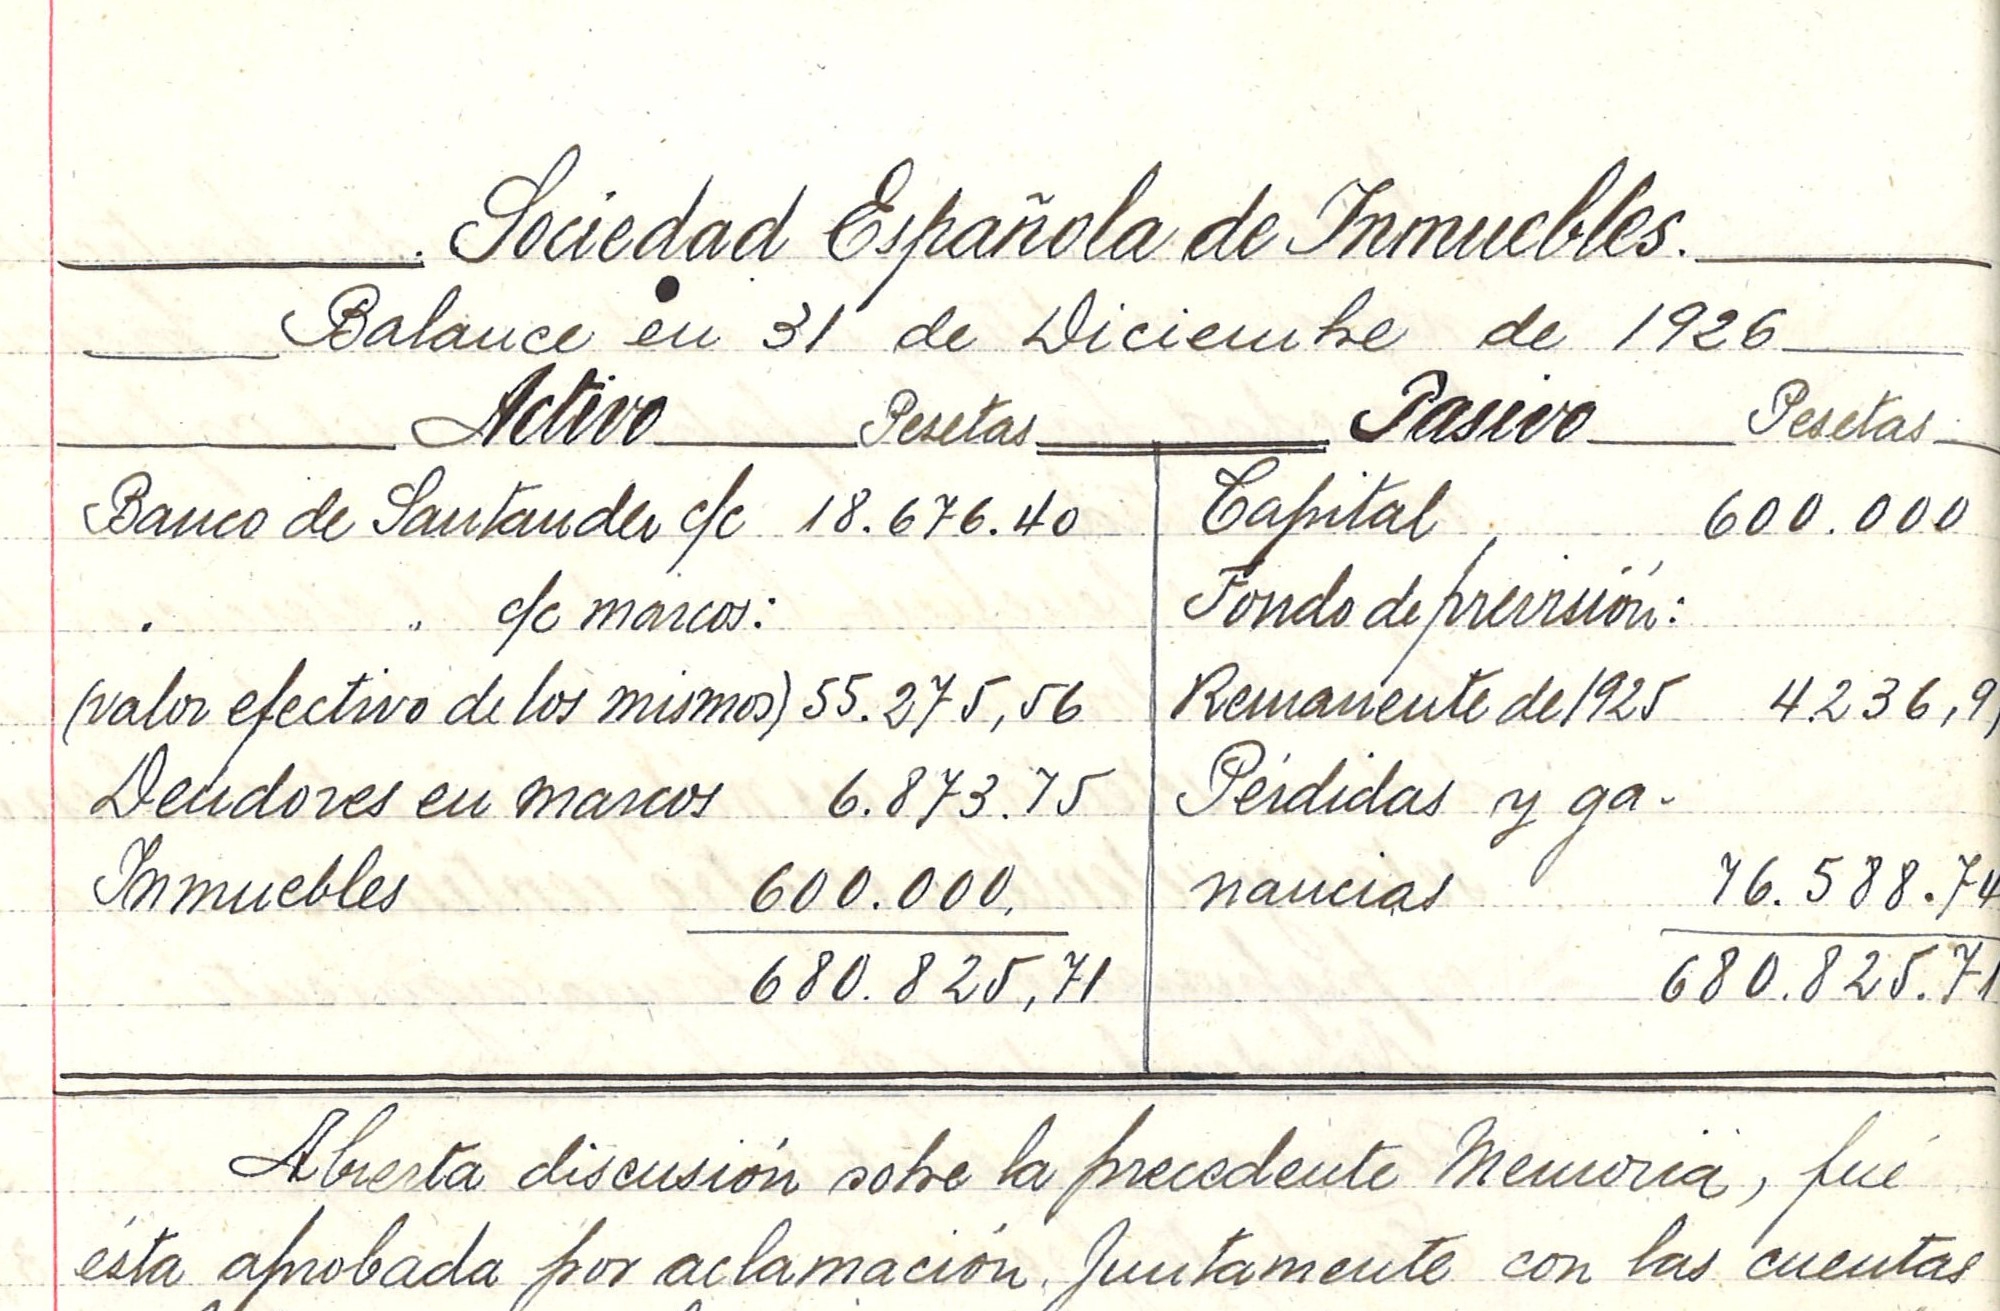 Sociedad Española de Inmuebles.
Balance en 31 de Diciembre de 1926
Activo Pesetas Pasivo Pesetas
Banco de Santander c/c 18.676.40 Capital 600.000
" " c/c marcos: Fondo de previsión:
(valor efectivo de los mismos) 55.275,56 Remanente de 1925 4236,9
Deudores en marcos 6.873.75 Pérdidas y ga-
Inmuebles 600.000. nancias 76.588.74
680.825,71 680.825.71
Abierta discusión sobre la precedente Memoria, fué
ésta aprobada por aclamación, juntamente con las cuentas